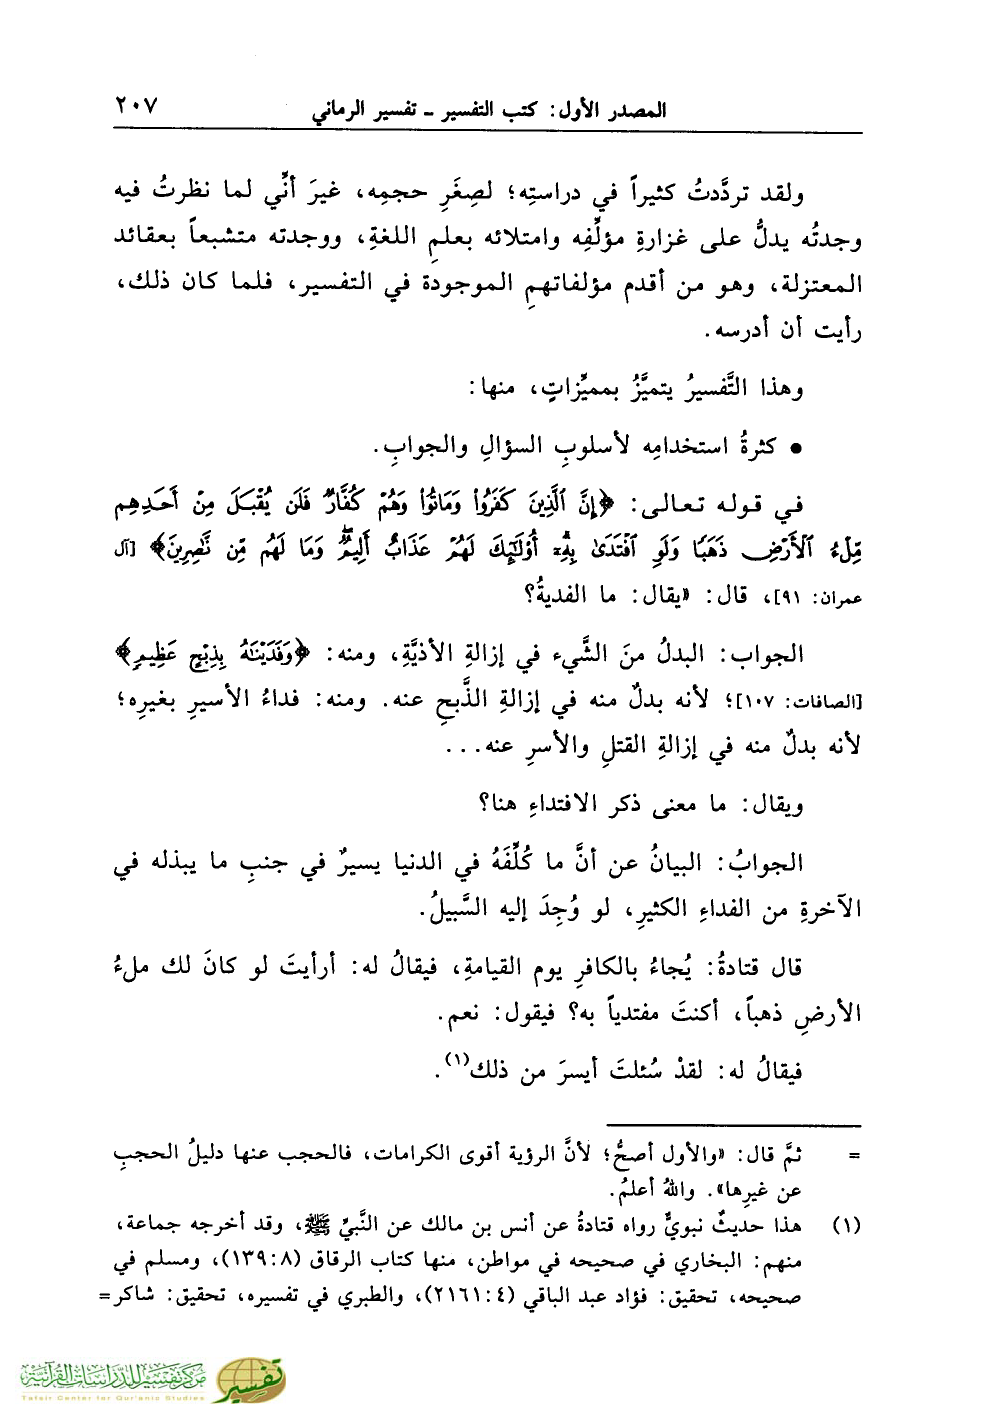 المصدر الأول: كتب التفسير ـ تفسير الرماني ٢٠٧
ولقد تردَّدتُ كثيراً في دراستِه؛ لصِغَرِ حجمِه، غيرَ أنِّي لما نظرتُ فيه
وجدتُه يدلُّ على غزارةِ مؤلِّفِه وامتلائه بعلمِ اللغةِ، ووجدته متشبعاً بعقائد
المعتزلة، وهو من أقدم مؤلفاتهمِ الموجودة في التفسير، فلما كان ذلك،
رأيت أن أدرسه.
وهذا التَّفسيرُ يتميَّزُ بمميِّزاتٍ، منها:
• كثرةُ استخدامِه لأسلوبِ السؤالِ والجوابِ.
في قوله تعالى: ﴿إِنَّ ٱلَّذِينَ كَفَرُوا۟ وَمَاتُوا۟ وَهُمْ كُفَّارٌ فَلَن يُقْبَلَ مِنْ أَحَدِهِم
مِّلْءُ ٱلْأَرْضِ ذَهَبًا وَلَوِ ٱفْتَدَىٰ بِهِۦٓ أُو۟لَـٰٓئِكَ لَهُمْ عَذَابٌ أَلِيمٌ وَمَا لَهُم مِّن نَّـٰصِرِينَ﴾ [آل
عمران: ٩١]، قال: «يقال: ما الفديةُ؟
الجواب: البدلُ منَ الشَّيء في إزالةِ الأذيَّةِ، ومنه: ﴿وَفَدَيْنَـٰهُ بِذِبْحٍ عَظِيمٍ﴾
[الصافات: ١٠٧]؛ لأنه بدلٌ منه في إزالةِ الذَّبحِ عنه. ومنه: فداءُ الأسيرِ بغيرِه؛
لأنه بدلٌ منه في إزالةِ القتلِ والأسرِ عنه...
ويقال: ما معنى ذكر الافتداءِ هنا؟
الجوابُ: البيانُ عن أنَّ ما كُلِّفَهُ في الدنيا يسيرٌ في جنبِ ما يبذله في
الآخرةِ من الفداءِ الكثيرِ، لو وُجِدَ إليه السَّبيلُ.
قال قتادةُ: يُجاءُ بالكافرِ يوم القيامةِ، فيقالُ له: أرأيتَ لو كانَ لك ملءُ
الأرضِ ذهباً، أكنتَ مفتدياً به؟ فيقول: نعم.
فيقالُ له: لقدْ سُئلتَ أيسرَ من ذلك(١).
= ثمَّ قال: «والأول أصحُّ؛ لأنَّ الرؤية أقوى الكرامات، فالحجب عنها دليلُ الحجبِ
عن غيرِها». واللهُ أعلمُ.
(١) هذا حديثٌ نبويٌّ رواه قتادةُ عن أنس بن مالك عن النَّبيِّ ﷺ، وقد أخرجه جماعة،
منهم: البخاري في صحيحه في مواطن، منها كتاب الرقاق (٨:١٣٩)، ومسلم في
صحيحه، تحقيق: فؤاد عبد الباقي (٤:٢١٦١)، والطبري في تفسيره، تحقيق: شاكر=
مركز تفسير للدراسات القرآنية
Tafsir Center for Qur'anic Studies
تفسير